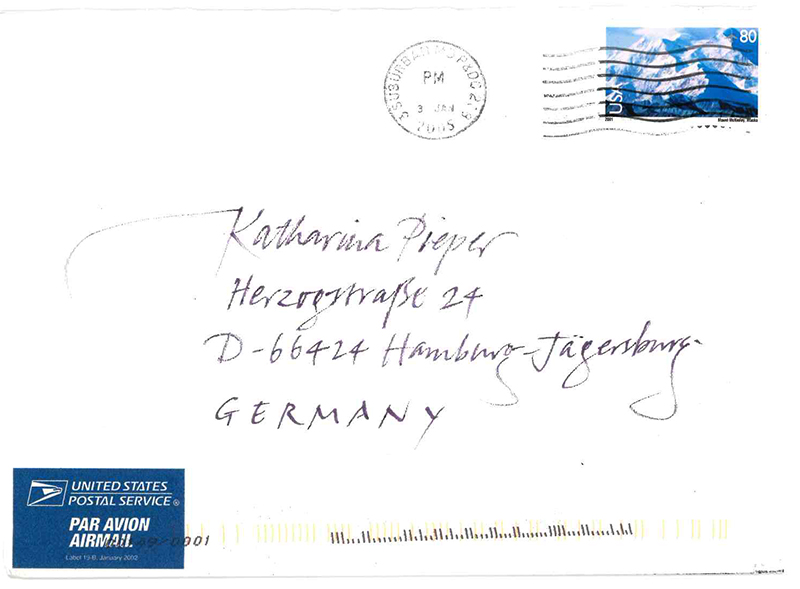 SUBURBAN MD P&DC 219
PM
3 JAN
2005
80
USA
2001
Mount McKinley, Alaska
Katharina Pieper
Herzogstraße 24
D-66424 Hamburg-Jägersburg
GERMANY
UNITED STATES
POSTAL SERVICE®
PAR AVION
AIRMAIL
09/0001
Label 19-B, January 2002